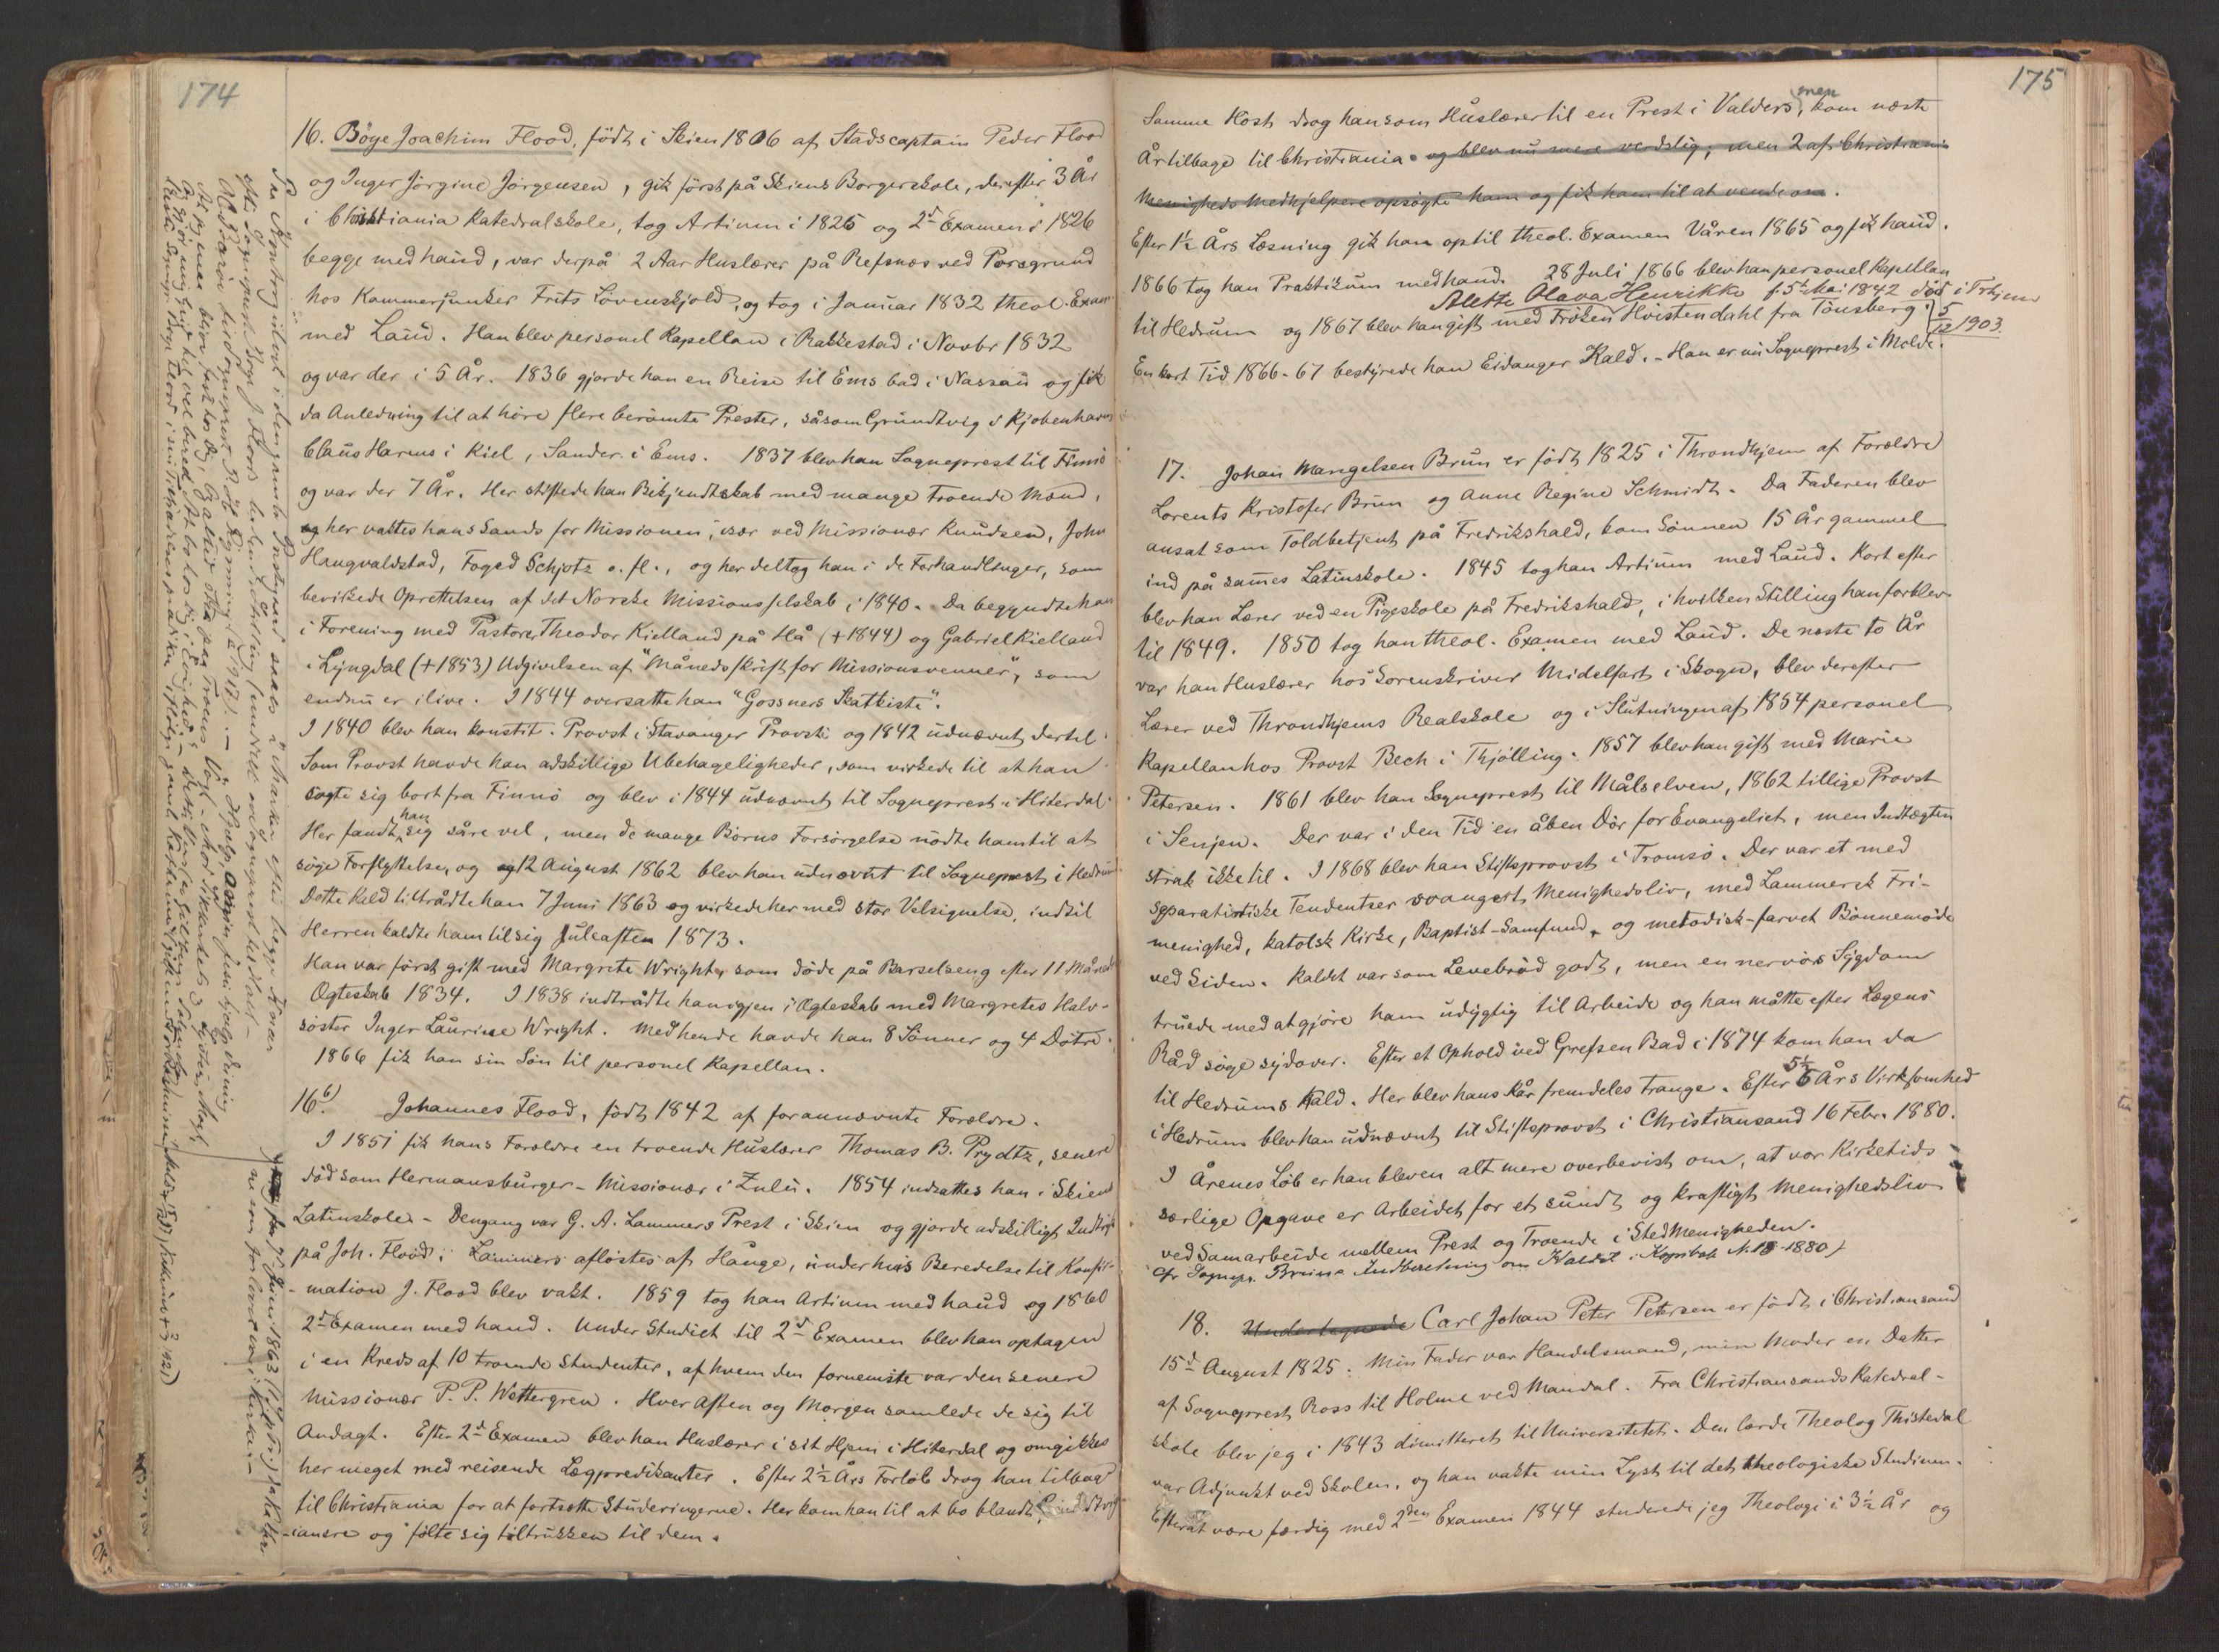 174
16. Böye Joachim Flood, født i Skien 1806 af Stadscaptain Peder Flood
og Inger Jörgine Jörgensen, gik først på Skiens Borgerskole, derefter 3 År
i Christiania Katedralskole, tog Artium i 1825 og 2d Examen i 1826
begge med haud, var derpå 2 Aar Huslærer på Refsnæs ved Porsgrund
hos Kammerjunker Frits Lövenskjold, og tog i Januar 1832 theol. Exam
med Laud. Han blev personel Kapellan i Rakkestad i Novbr 1832
og var der i 5 År. 1836 gjorde han en Reise til Ems bad i Nassau og fik
da Anledning til at höre flere berömte Prester, såsom Grundtvig i Kjøbenhavn
Claus Harms i Kiel, Sander i Ems. 1837 blev han Sogneprest til Finnö
og var der 7 År. Her stiftede han Bekjendtskab med mange troende Mænd,
og her vaktes hans Sands for Missionen, især ved Missionær Knudsen, John
Haugvaldstad, Foged Schjøtz o. fl., og her deltog han i de Forhandlinger, som
bevirkede Oprettelsen af det Norske Missionsselskab i 1840. Da begyndte han
i Forening med Pastore Theodor Kielland på Hå (+1844) og Gabriel Kielland
i Lyngdal (+1853) Udgivelsen af "Månedsskrift for Missionsvenner", som
endnu er ilive. I 1844 oversatte han "Gossners Skatkiste".
I 1840 blev han konstit. Provst i Stavanger Provsti og 1842 udnævnt dertil.
Som Provst havde han adskillige Ubehageligheder, som virkede til at han
søgte sig bort fra Finnö og blev i 1844 udnævnt til Sogneprest i Hiterdal.
Her fandt han sig såre vel, men de mange Börns Forsørgelse nödte ham til at
söge Forflyttelse, og 12 August 1862 blev han udnævnt til Sogneprest i Hedrum
Dette Kald tiltrådte han 7 Juni 1863 og virkede her med stor Velsignelse, indtil
Herren kaldte ham til sig Juleaften 1873.
Han var först gift med Margrete Wright, som döde på Barselseng efter 11 Måneds
Ægteskab 1834. I 1838 indtrådte han igjen i Ægteskab med Margretes Halv-
söster Inger Laurine Wright. Med hende havde han 8 Sönner og 4 Dötre.
1866 fik han sin Sön til personel Kapellan.
16 b) Johannes Flood, född 1842 af forannævnte Forældre.
I 1851 fik hans Forældre en troende Huslærer Thomas B. Prydtz, senere
död som Hermansburger-Missionær i Zulu. 1854 indsattes han i Skiens
Latinskole. - Dengang var G. A. Lammers Prest i Skien og gjorde adskilligt Indtryk
på Joh. Flood. Lammers aflöstes af Hauge, under hvis Beredelse til Konfir-
mation J. Flood blev vakt. 1859 tog han Artium med haud og 1860
2d Examen med haud. Under Studiet til 2d Examen blev han optagen
i en Kreds af 10 troende Studenter, af hvem den fornemste var den senere
Missionær P. P. Wettergren. Hver Aften og Morgen samlede de sig til
Andagt. Efter 2d Examen blev han Huslærer i sit Hjem i Hiterdal og omgikkes
her meget med reisende Lægpredikanter. Efter 2½ Års Forløb drog han tilbage
til Christiania for at fortsætte Studeringerne. Her kom han til at bo blandt
-ianere og fölte sig tiltrukken til dem.
175
Samme Höst drog han som Huslærer til en Prest i Valders, men kom næste
År tilbage til Christiania og blev nu mere verdslig; men 2 af Christiania
Menigheds Medhjelpere opsögte ham og fik ham til at vende om.
Efter 1½ Års Læsning gik han op til theol. Examen Våren 1865 og fik haud.
1866 tog han Praktikum med haud. 28 Juli 1866 blev han personel Kapellan
Alette Olava Henrikke f. 5te Mai 1842 död i Trhjem
til Hedrum og 1867 blev han gift med Fröken Hvistendahl fra Tönsberg. 5/12 1903.
En kort Tid 1866-67 bestyrede han Eidanger Kald. - Han er nu Sogneprest i Molde.
17. Johan Mangelsen Brun er född 1825 i Throndhjem af Forældre
Lorents Kristofer Brun og Anne Regine Schmidt. Da Faderen blev
ansat som Toldbetjent på Fredrikshald, kom Sönnen 15 År gammel
ind på sammes Latinskole. 1845 tog han Artium med Laud. Kort efter
blev han Lærer ved en Pigeskole på Fredrikshald, i hvilken Stilling han forblev
til 1849. 1850 tog han theol. Examen med Laud. De næste to År
var han Huslærer hos Sorenskriver Midelfart i Skogn, blev derefter
Lærer ved Throndhjems Realskole og i Slutningen af 1854 personel
Kapellan hos Provst Bech i Thjölling. 1857 blev han gift med Marie
Petersen. 1861 blev han Sogneprest til Målselven, 1862 tillige Provst
i Senjen. Der var i den Tid en åben Dör for Evangeliet, men Indtægten
strak ikke til. I 1868 blev han Stiftsprovst i Tromsö. Der var et med
separatistiske Tendentser svangert Menighedsliv, med Lammersk Fri-
menighed, katolsk Kirke, Baptist-Samfund, og metodisk-farvet Bönnemöde
ved Siden. Kaldet var som Levebröd godt, men en nervös Sygdom
truede med at gjöre ham udygtig til Arbeide og han måtte efter Lægens
Råd söge sydover. Efter et Ophold ved Grefsen Bad i 1874 kom han da
til Hedrums Kald. Her blev hans Kår fremdeles trange. Efter 5½ Års Virksomhed
i Hedrum blev han udnævnt til Stiftsprovst i Christiansand 16 Febr. 1880.
I Årenes Löb er han bleven alt mere overbevist om, at vor Kirketids
særlige Opgave er Arbeidet for et sundt og kraftigt Menighedsliv
ved Samarbeide mellem Prest og Troende i StedMenigheden.
cfr Sognepr. Bruns Indberetning om Kaldet i Kopibok N. 18-1880)
18. Undertegnede Carl Johan Peter Petersen er född i Christiansand
15d August 1825. Min Fader var Handelsmand, min Moder en Datter
af Sogneprest Ross til Holme ved Mandal. Fra Christiansands Katedral-
skole blev jeg i 1843 dimitteret til Universitetet. Den lærde Theolog Thistedal
var Adjunkt ved Skolen, og han vakte min Lyst til det theologiske Studium.
Efterat være færdig med 2den Examen 1844 studerede jeg Theologi i 3½ År og